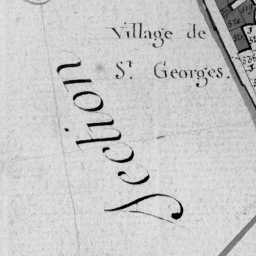 Village de
St. Georges.
Section